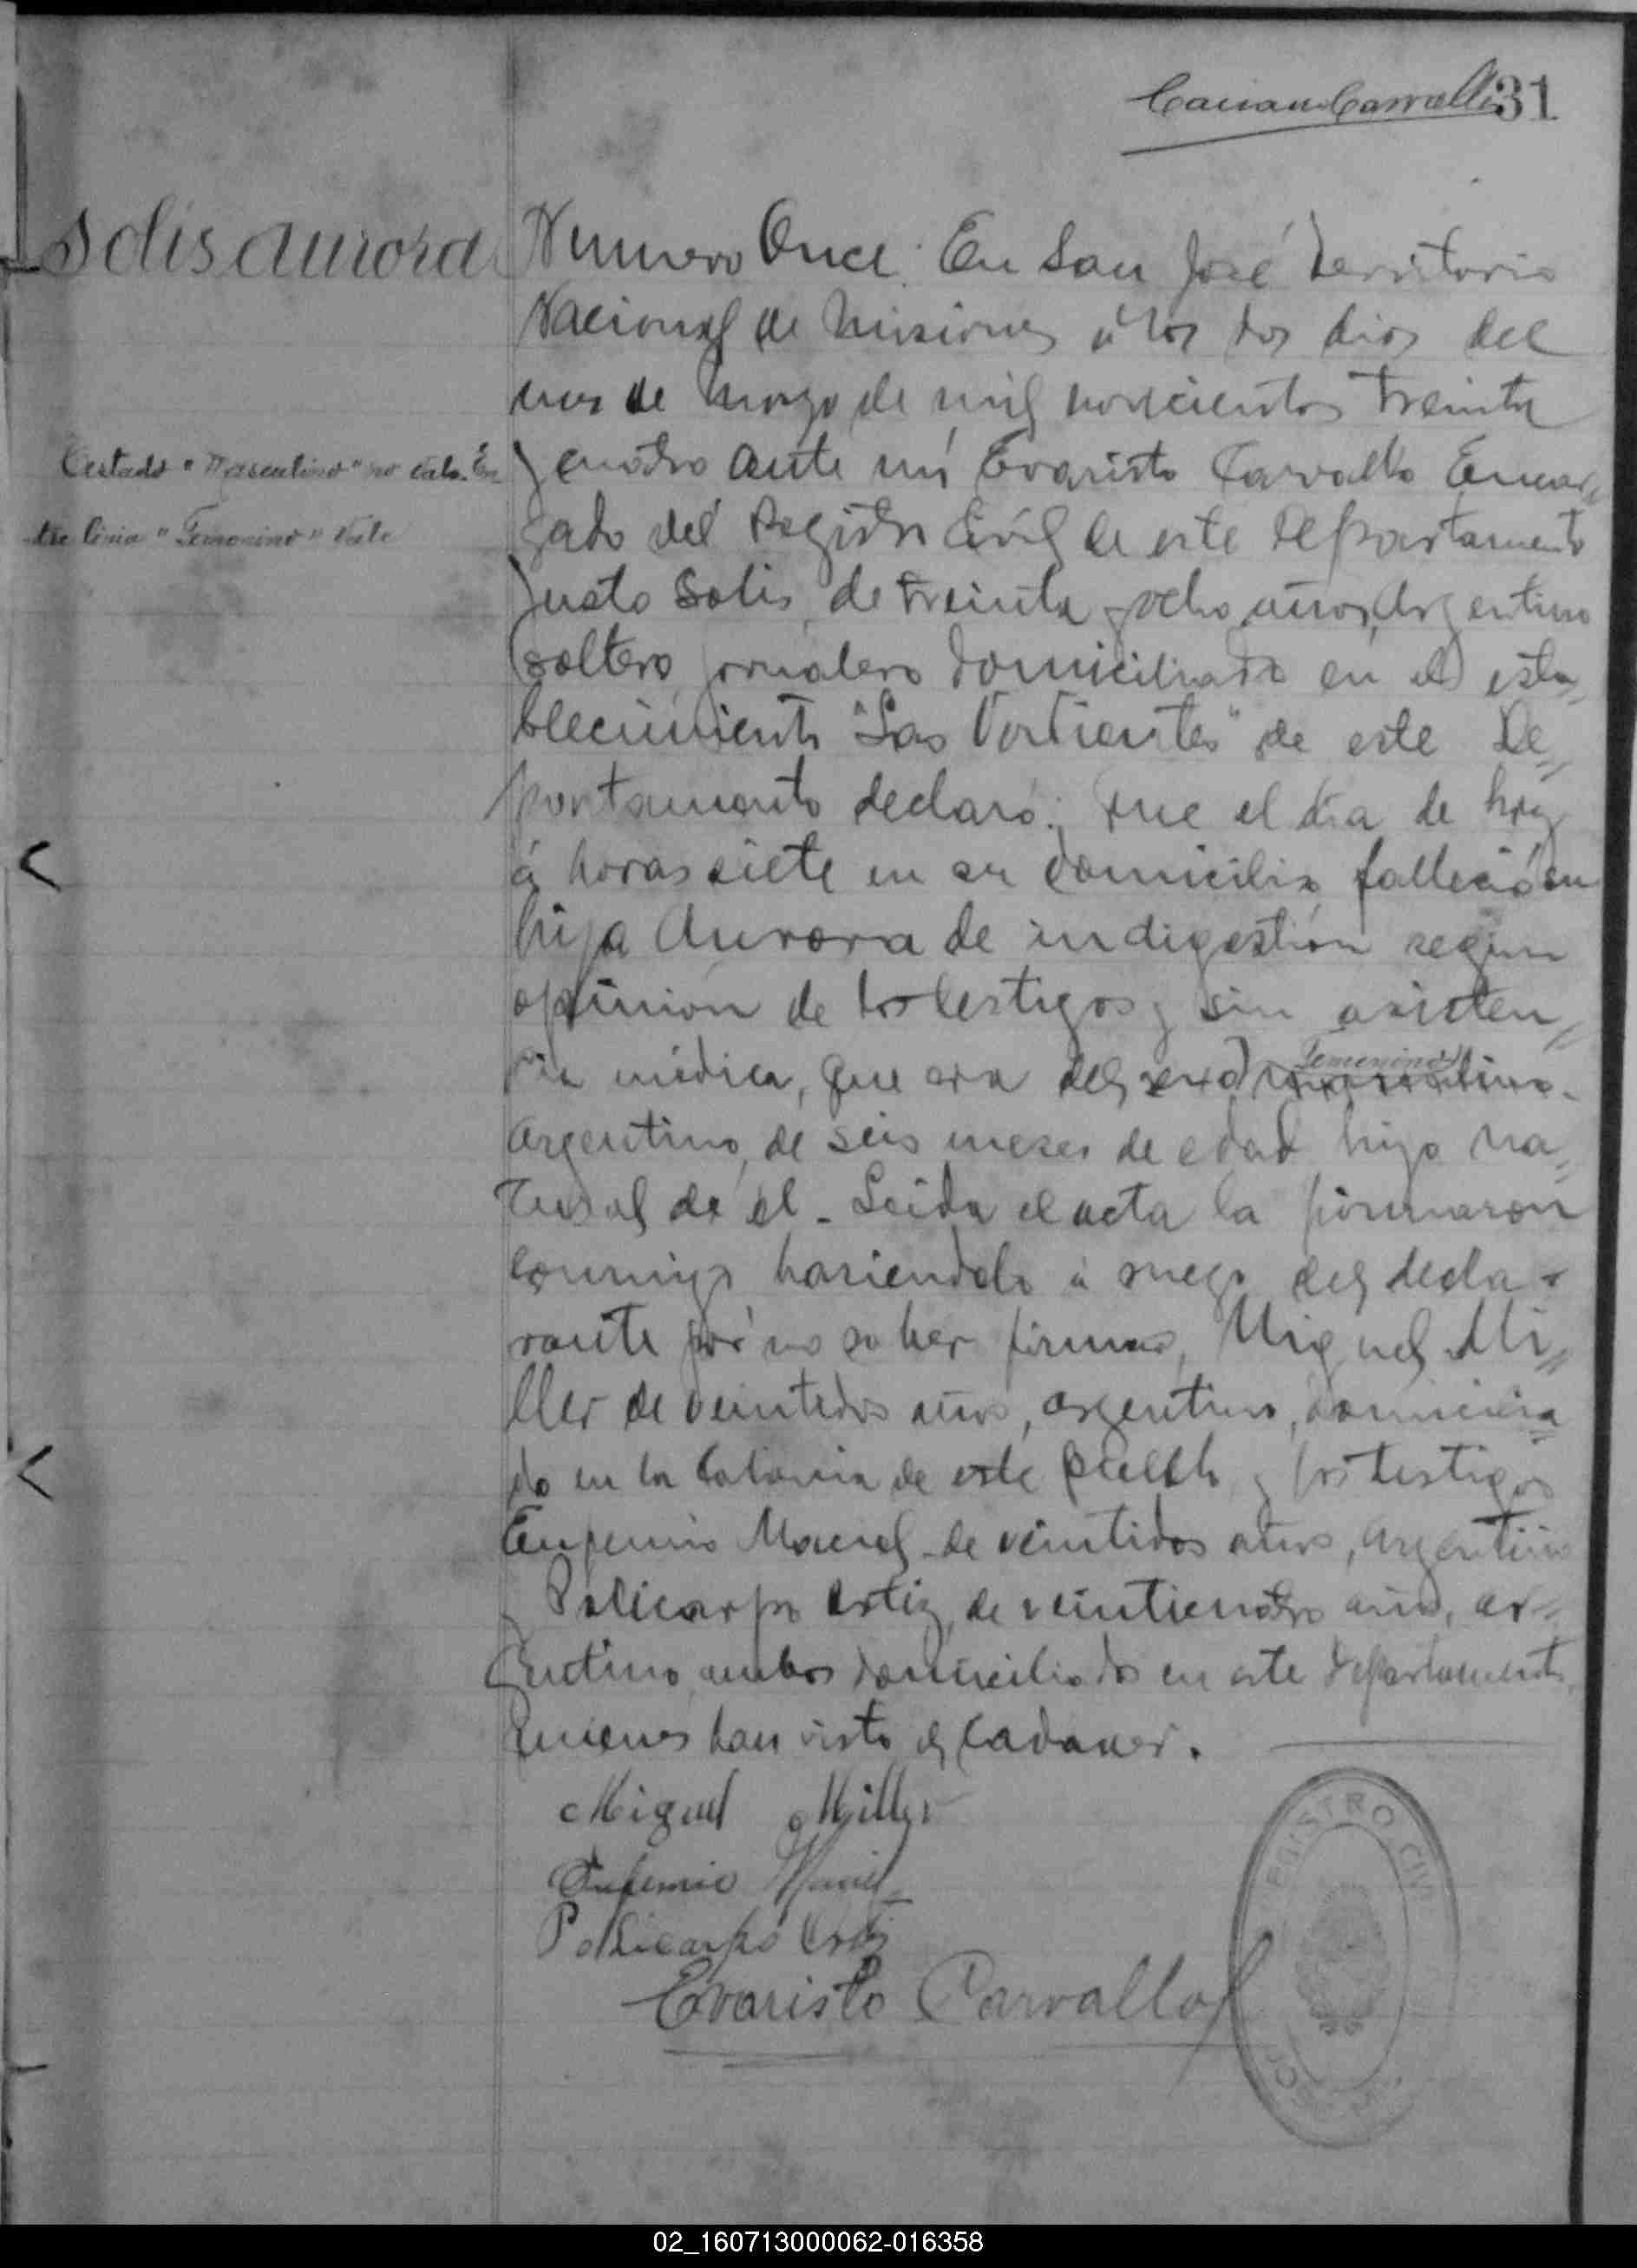 31
Solis Aurora
Numero Once. En San José Territorio
Nacional de Misiones á los dos dias del
mes de Marzo de mil novecientos treinta
y cuatro ante mi Evaristo Carvallo Encar
gado del Registro Civil de este Departamento
Justo Solis, de treinta y ocho años, Argentino
soltero jornalero domiciliado en el esta
blecimiento "Las Vertientes" de este De
partamento declaró: que el dia de hoy
á horas siete en su domicilio falleció su
hija Aurora de indigestión segun
opinion de los testigos y sin asisten
cia médica, que era del sexo masculino
Femenino
Argentino, de seis meses de edad hijo na
tural de él - Leida el acta la firmaron
conmigo haciendolo á ruego del decla
rante por no saber firmar, Miguel Mi
ller de veintidos años, argentino, domicilia
do en la Colonia de este pueblo y los testigos
Eufemio Maciel de veintidos años, Argentino
y Policarpo Ortiz, de veinticuatro años, ar
gentino ambos domiciliados en este departamento
quienes han visto el cadaver.
Testado "Masculino" no vale. En
tre linia "Femenino" vale
Miguel Miller
Eufemio Maciel
Policarpo Ortiz
Evaristo Carvallo
REGISTRO CIVIL
02_160713000062-016358